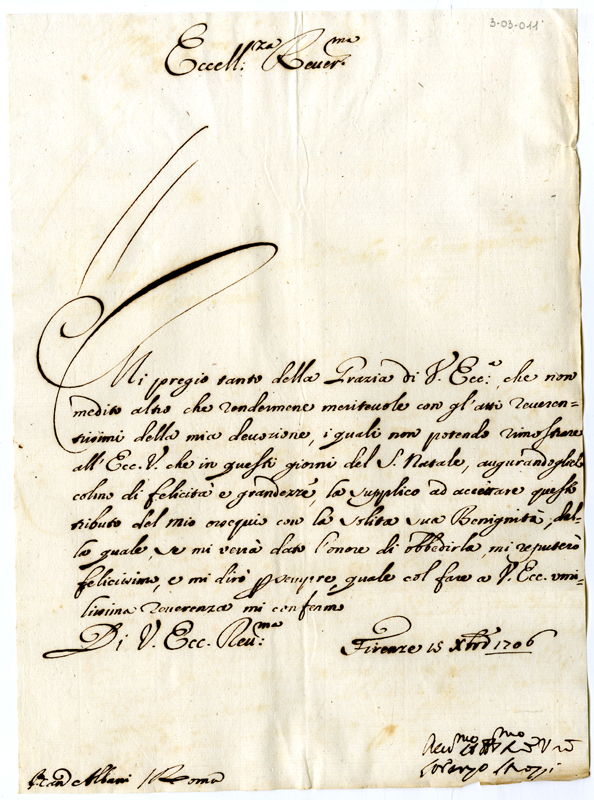 3-03-011
Eccell:za Reuer:ma
Mi pregio tanto della Grazia di V. Ecc:a, che non
medito altro che rendermene meriteuole con gl'atti reueren-
tissimi della mia deuozione, i quali non potendo rimostrare
all'Ecc. V. che in questi giorni del S. Natale, augurandogli el
colmo di felicità e grandezze, la supplico ad accettare questo
tributo del mio ossequio con la solita sua Benignità, dal-
la quale, se mi verrà dato l'onore di obbedirla, mi reputerò
felicissimo, e mi dirò p sempre, quale col fare a V. Ecc. vmi-
lissima reuerenza mi confermo
Di V. Ecc. Reu:ma
Firenze 15 Xbre 1706
Lorenzo Strozzi
Albani Roma